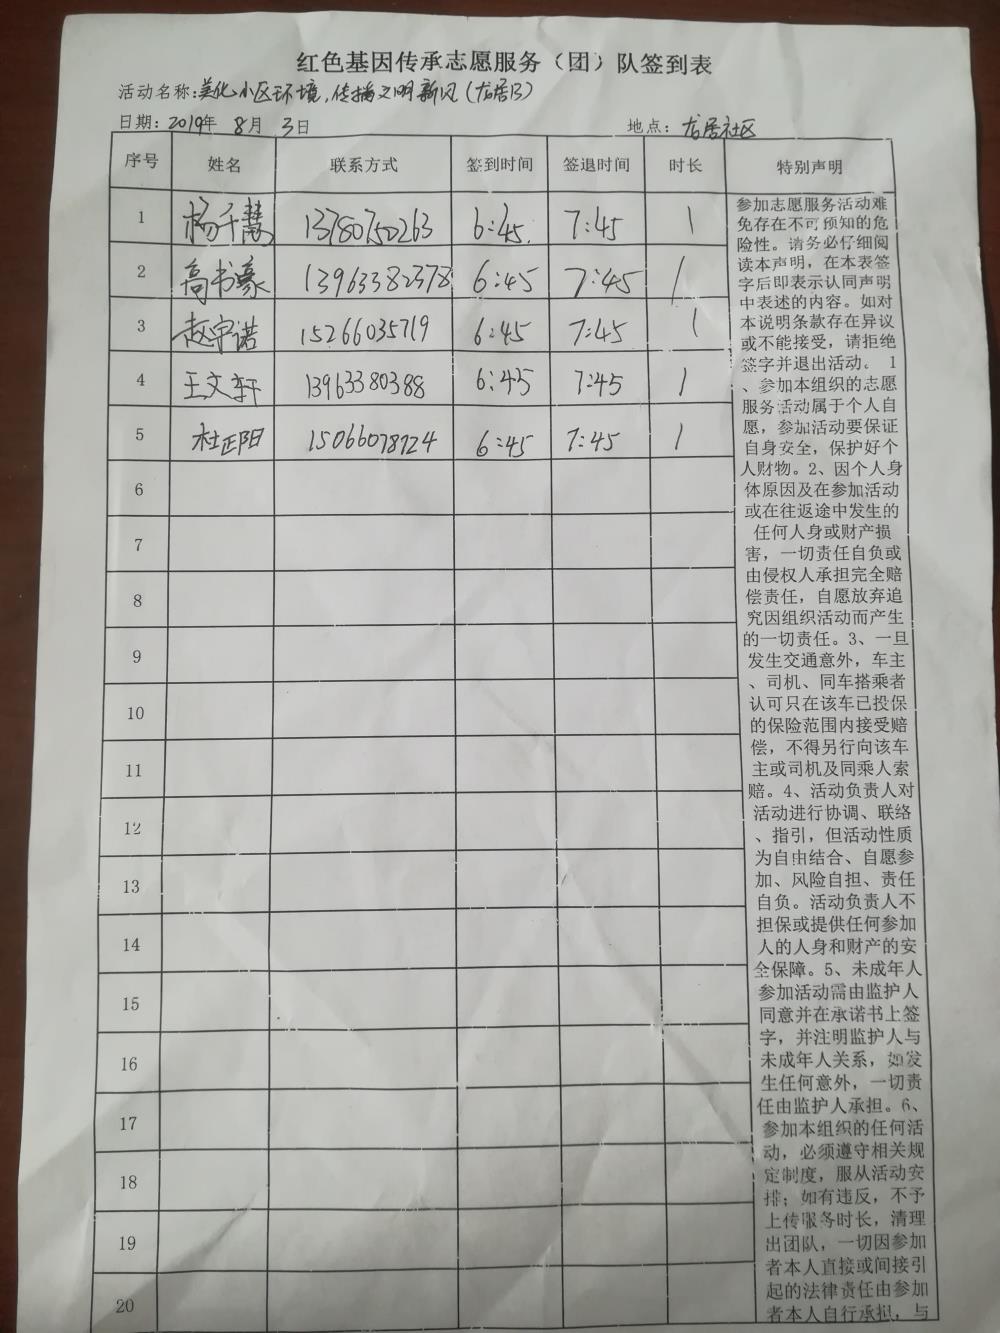 红色基因传承志愿服务（团）队签到表
活动名称：美化小区环境，传播文明新风（龙居B）
日期：2019年 8月 3日 地点：龙居社区
序号 姓名 联系方式 签到时间 签退时间 时长 特别声明
1 杨千慧 13780750263 6:45. 7:45 1
2 高书豪 13963382378 6:45 7:45 1
3 赵宇诺 15266035719 6:45 7:45 1
4 王文轩 13963380388 6:45 7:45 1
5 杜正阳 15066078724 6:45 7:45 1
6
7
8
9
10
11
12
13
14
15
16
17
18
19
20
参加志愿服务活动难
免存在不可预知的危
险性。请务必仔细阅
读本声明，在本表签
字后即表示认同声明
中表述的内容。如对
本说明条款存在异议
或不能接受，请拒绝
签字并退出活动。 1
、参加本组织的志愿
服务活动属于个人自
愿，参加活动要保证
自身安全，保护好个
人财物。2、因个人身
体原因及在参加活动
或在往返途中发生的
任何人身或财产损
害，一切责任自负或
由侵权人承担完全赔
偿责任，自愿放弃追
究因组织活动而产生
的一切责任。3、一旦
发生交通意外，车主
、司机、同车搭乘者
认可只在该车已投保
的保险范围内接受赔
偿，不得另行向该车
主或司机及同乘人索
赔。4、活动负责人对
活动进行协调、联络
、指引，但活动性质
为自由结合、自愿参
加、风险自担、责任
自负。活动负责人不
担保或提供任何参加
人的人身和财产的安
全保障。5、未成年人
参加活动需由监护人
同意并在承诺书上签
字，并注明监护人与
未成年人关系，如发
生任何意外，一切责
任由监护人承担。6、
参加本组织的任何活
动，必须遵守相关规
定制度，服从活动安
排；如有违反，不予
上传服务时长，清理
出团队，一切因参加
者本人直接或间接引
起的法律责任由参加
者本人自行承担，与